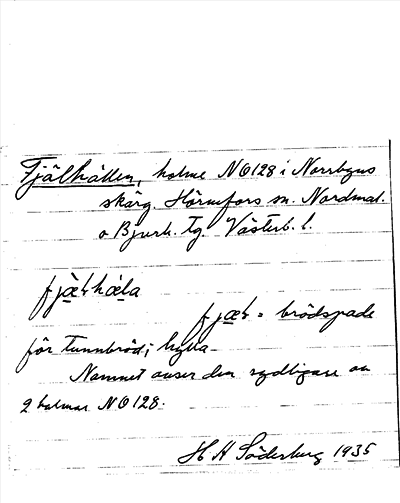 Fjälhällen, holme NO128 i Norrbyns
skärg. Hörnefors sn. Nordmal.
o Bjurh. tg. Västerb. l.
fjæ̀ƚhæla
fjæƚ = brödspade
för tunnbröd; hylla
Namnet avser den sydligare av
2 holmar NO128.
H H Söderberg 1935